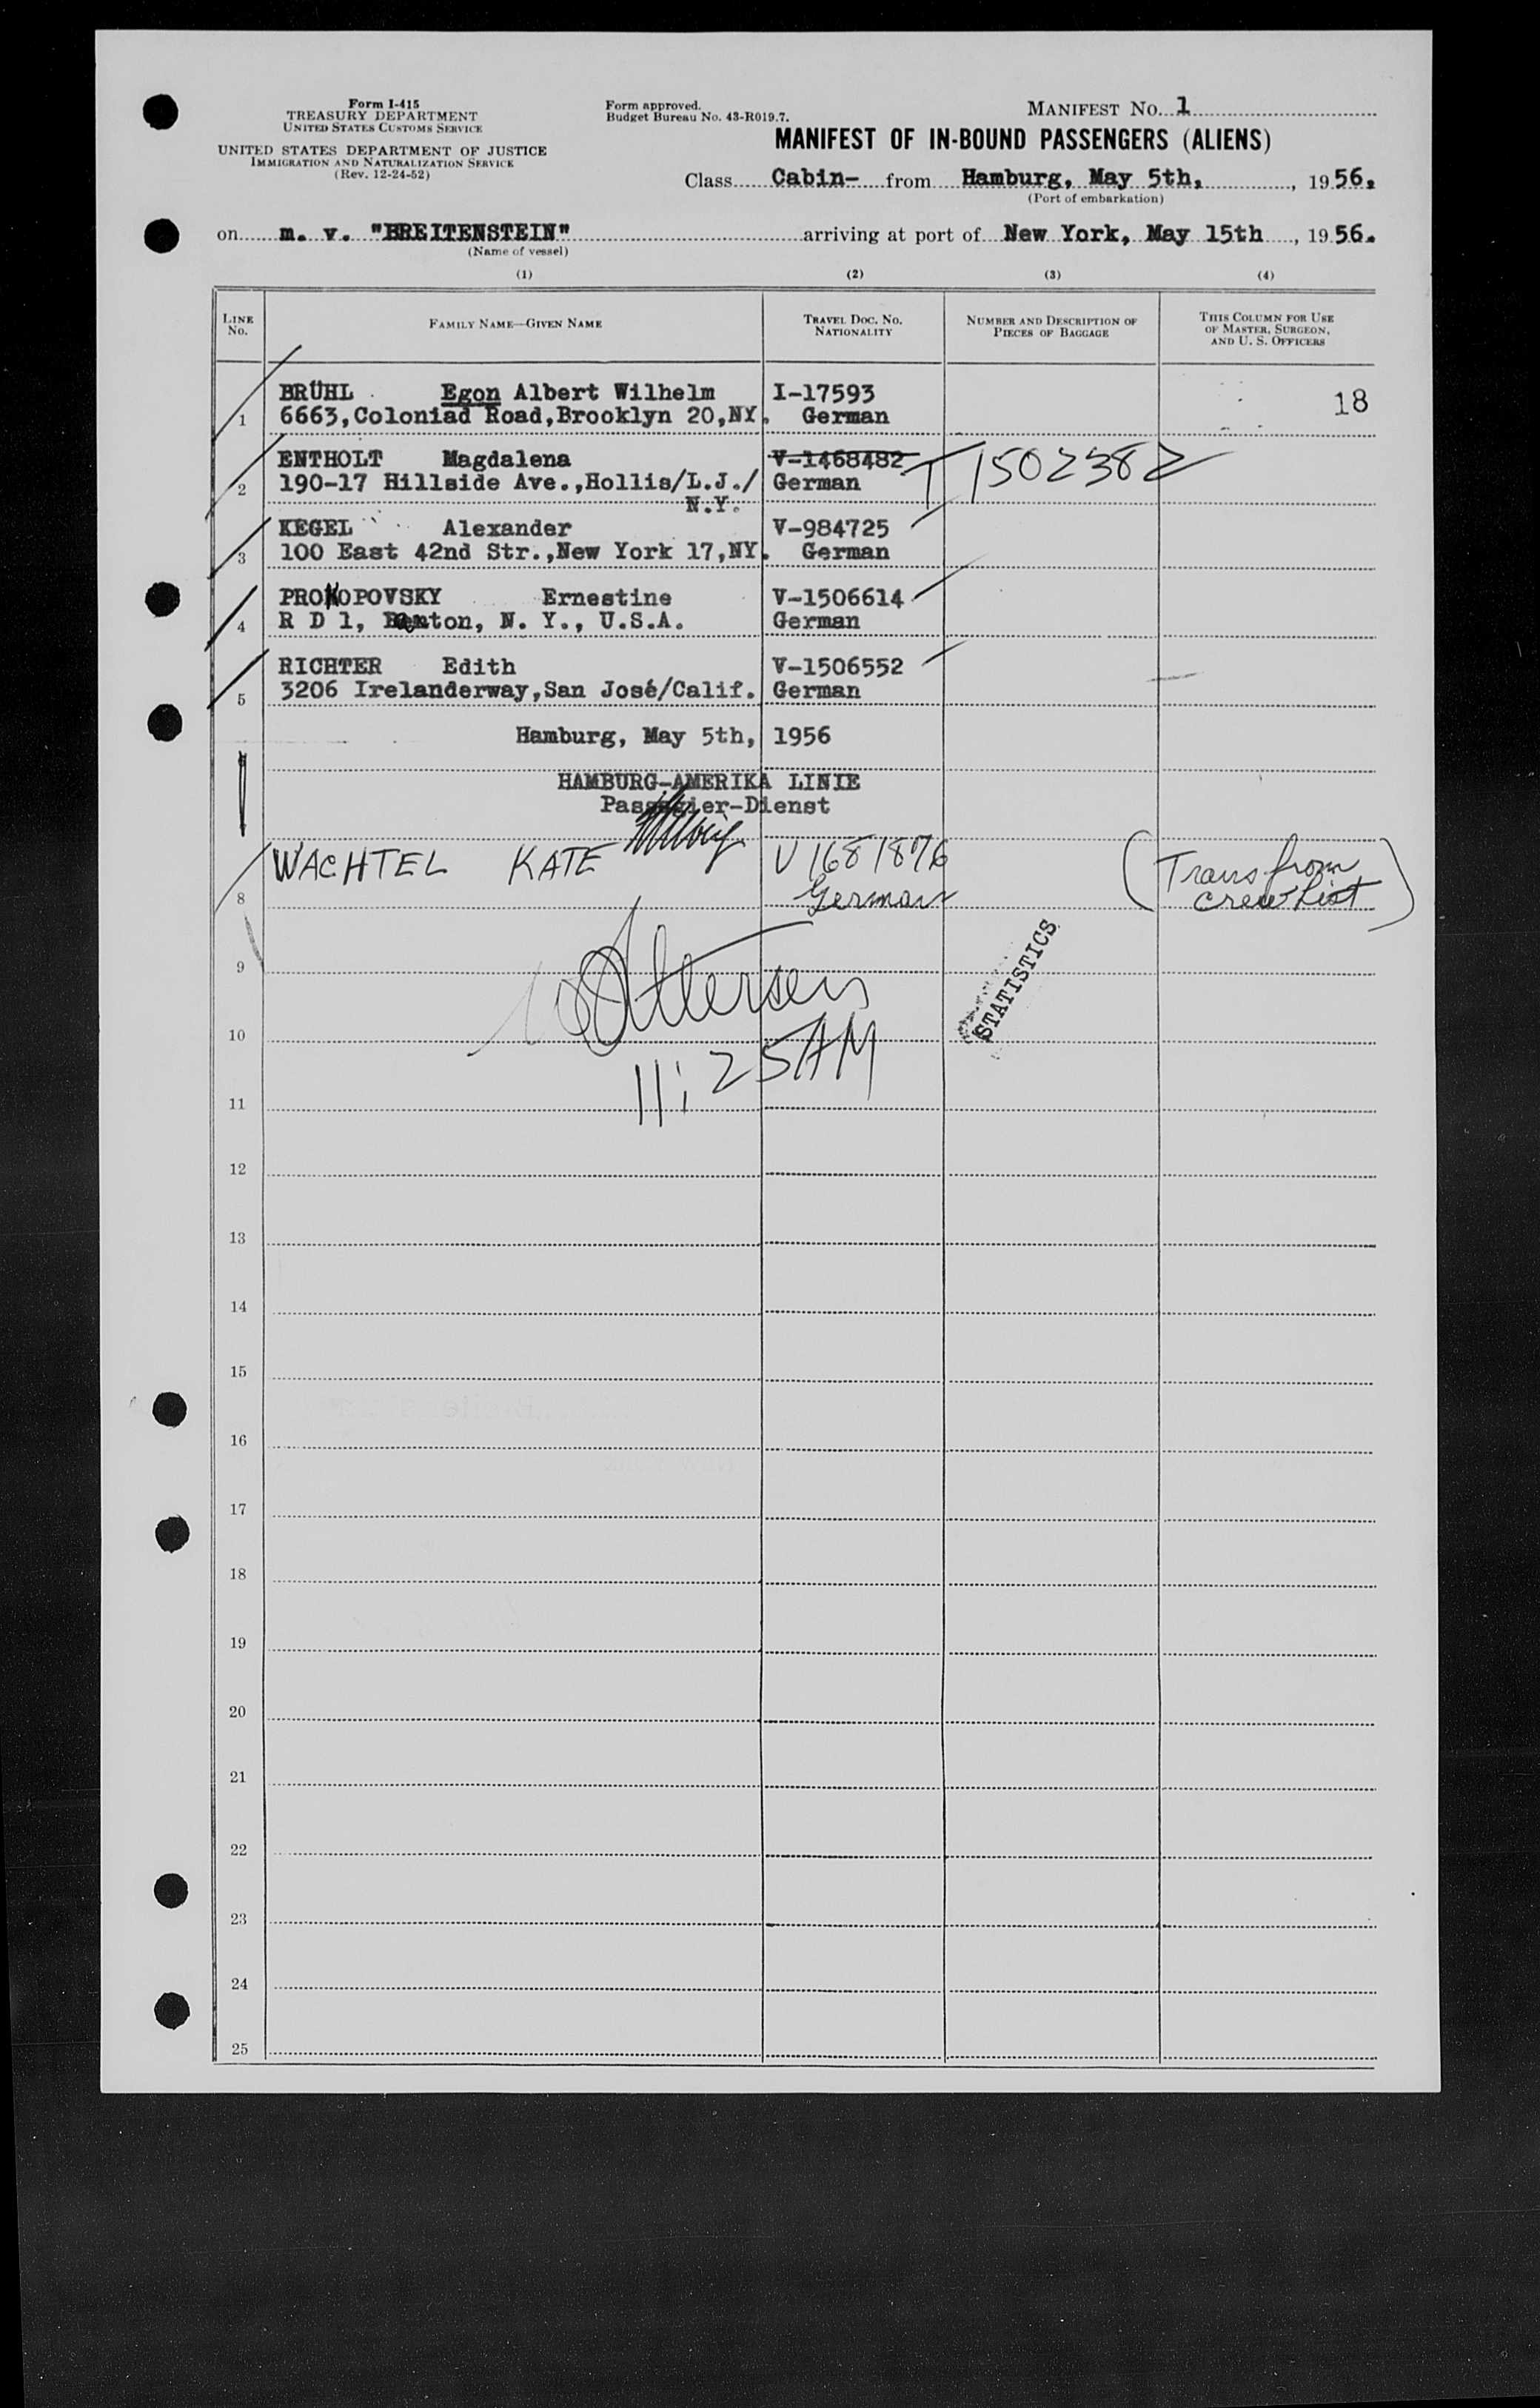 Form I-415
TREASURY DEPARTMENT
UNITED STATES CUSTOMS SERVICE
UNITED STATES DEPARTMENT OF JUSTICE
IMMIGRATION AND NATURALIZATION SERVICE
(Rev. 12-24-52)
Form approved.
Budget Bureau No. 43-R019.7.
MANIFEST NO. 1
MANIFEST OF IN-BOUND PASSENGERS (ALIENS)
Class Cabin- from Hamburg, May 5th, , 1956,
(Port of embarkation)
on m. v. "BREITENSTEIN" arriving at port of New York, May 15th , 1956.
(Name of vessel)
(1) (2) (3) (4)
LINE NO. FAMILY NAME—GIVEN NAME TRAVEL DOC. NO. NATIONALITY NUMBER AND DESCRIPTION OF PIECES OF BAGGAGE THIS COLUMN FOR USE OF MASTER, SURGEON, AND U. S. OFFICERS
BRÜHL Egon Albert Wilhelm I-17593 18
1 6663,Coloniad Road,Brooklyn 20,NY. German
ENTHOLT Magdalena V-1468482 T1502382
2 190-17 Hillside Ave.,Hollis/L.J./ German
N.Y.
KEGEL Alexander V-984725
3 100 East 42nd Str.,New York 17,NY. German
PROKOPOVSKY Ernestine V-1506614
4 R D 1, N. Y., U.S.A. German
RICHTER Edith V-1506552
5 3206 Irelanderway,San José/Calif. German
Hamburg, May 5th, 1956
HAMBURG-AMERIKA LINIE
Passagier-Dienst
WACHTEL KATE V1681876 (Trans from
8 German crew list)
9
STATISTICS
10
11:25AM
11
12
13
14
15
16
17
18
19
20
21
22
23
24
25